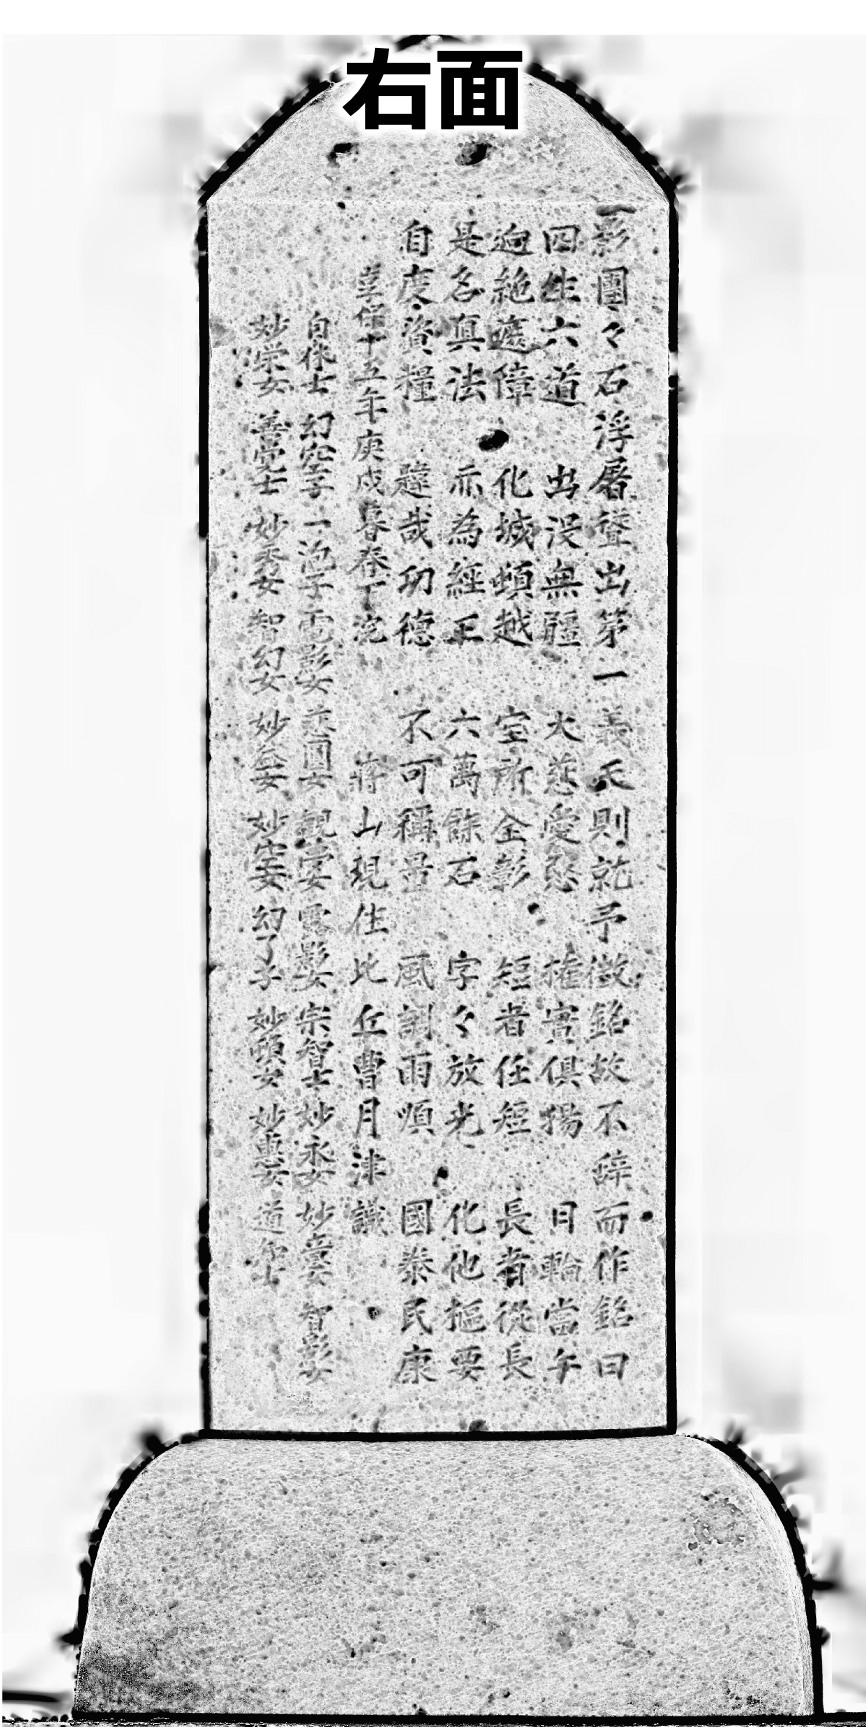 右面
一影團々石浮屠聳出第一義天則就予做銘故不辞而作銘曰
四生六道 出没無疆 大慈愛愍 権實俱揚 日輪當午
迥絶遮障 化城頓越 宝所全彰 短者任短 長者從長
是名真法 亦為經王 六萬餘石 字々放光 化他摳要
自度資糧 韙哉功德 不可稱量 風調雨順 國泰民康
享保十五年庚戌暮春下浣 蒋山現住比丘曹月津識
自休士 幻空子 一泡子 電影女 観空女 露影女 宗智士 妙永女 妙意女 智彰女
妙栄女 善覚士 妙秀女 智幻女 妙益女 妙空女 幻了子 妙頓女 妙惠女